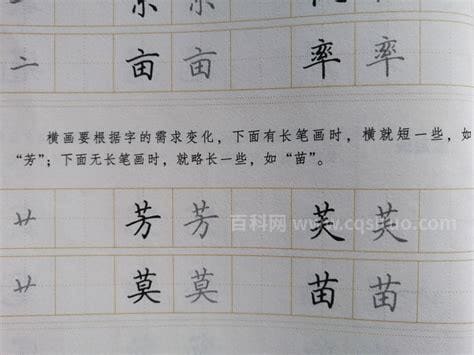 亠 亩 亩 率 率
横画要根据字的需求变化,下面有长笔画时,横就短一些,如
“芳”;下面无长笔画时,就略长一些,如“苗”。
艹 芳 芳 芙 芙
百科网 www.cqsituo.com
艹 莫 莫 苗 苗